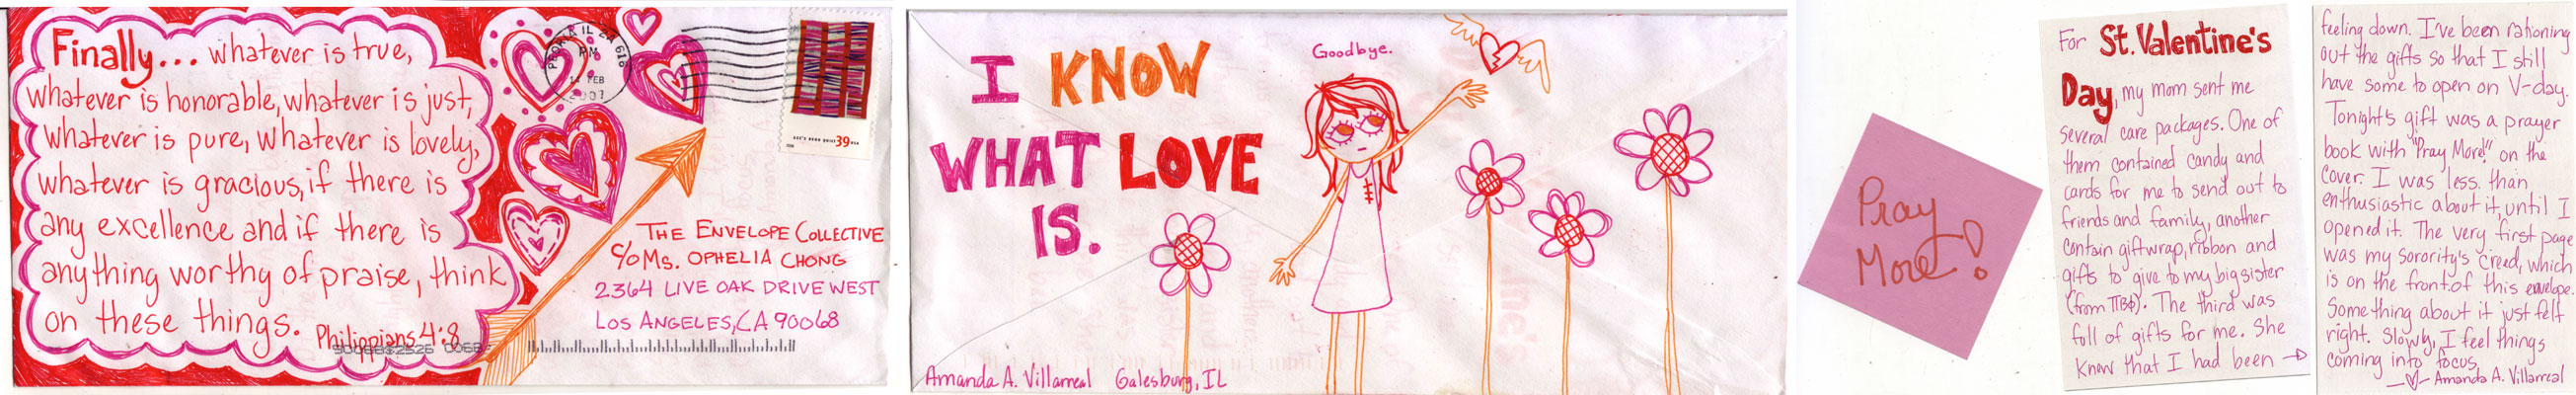 Finally... whatever is true,
whatever is honorable, whatever is just,
whatever is pure, whatever is lovely,
whatever is gracious, if there is
any excellence and if there is
anything worthy of praise, think
on these things. Philippians 4:8
IL
PM
FEB
2007
39 USA
THE ENVELOPE COLLECTIVE
C/O MS. OPHELIA CHONG
2364 LIVE OAK DRIVE WEST
LOS ANGELES, CA 90068
I KNOW
WHAT LOVE
IS.
Goodbye.
Amanda A. Villarreal Galesburg, IL
Pray
More!
For St. Valentine's
Day, my mom sent me
several care packages. One of
them contained candy and
cards for me to send out to
friends and family, another
contain giftwrap, ribbon and
gifts to give to my big sister
(from ΠΒΦ). The third was
full of gifts for me. She
knew that I had been →
feeling down. I've been rationing
out the gifts so that I still
have some to open on V-day.
Tonight's gift was a prayer
book with "Pray More!" on the
cover. I was less than
enthusiastic about it until I
opened it. The very first page
was my sorority's creed, which
is on the front of this envelope.
Something about it just felt
right. Slowly, I feel things
coming into focus.
—♡— Amanda A. Villarreal